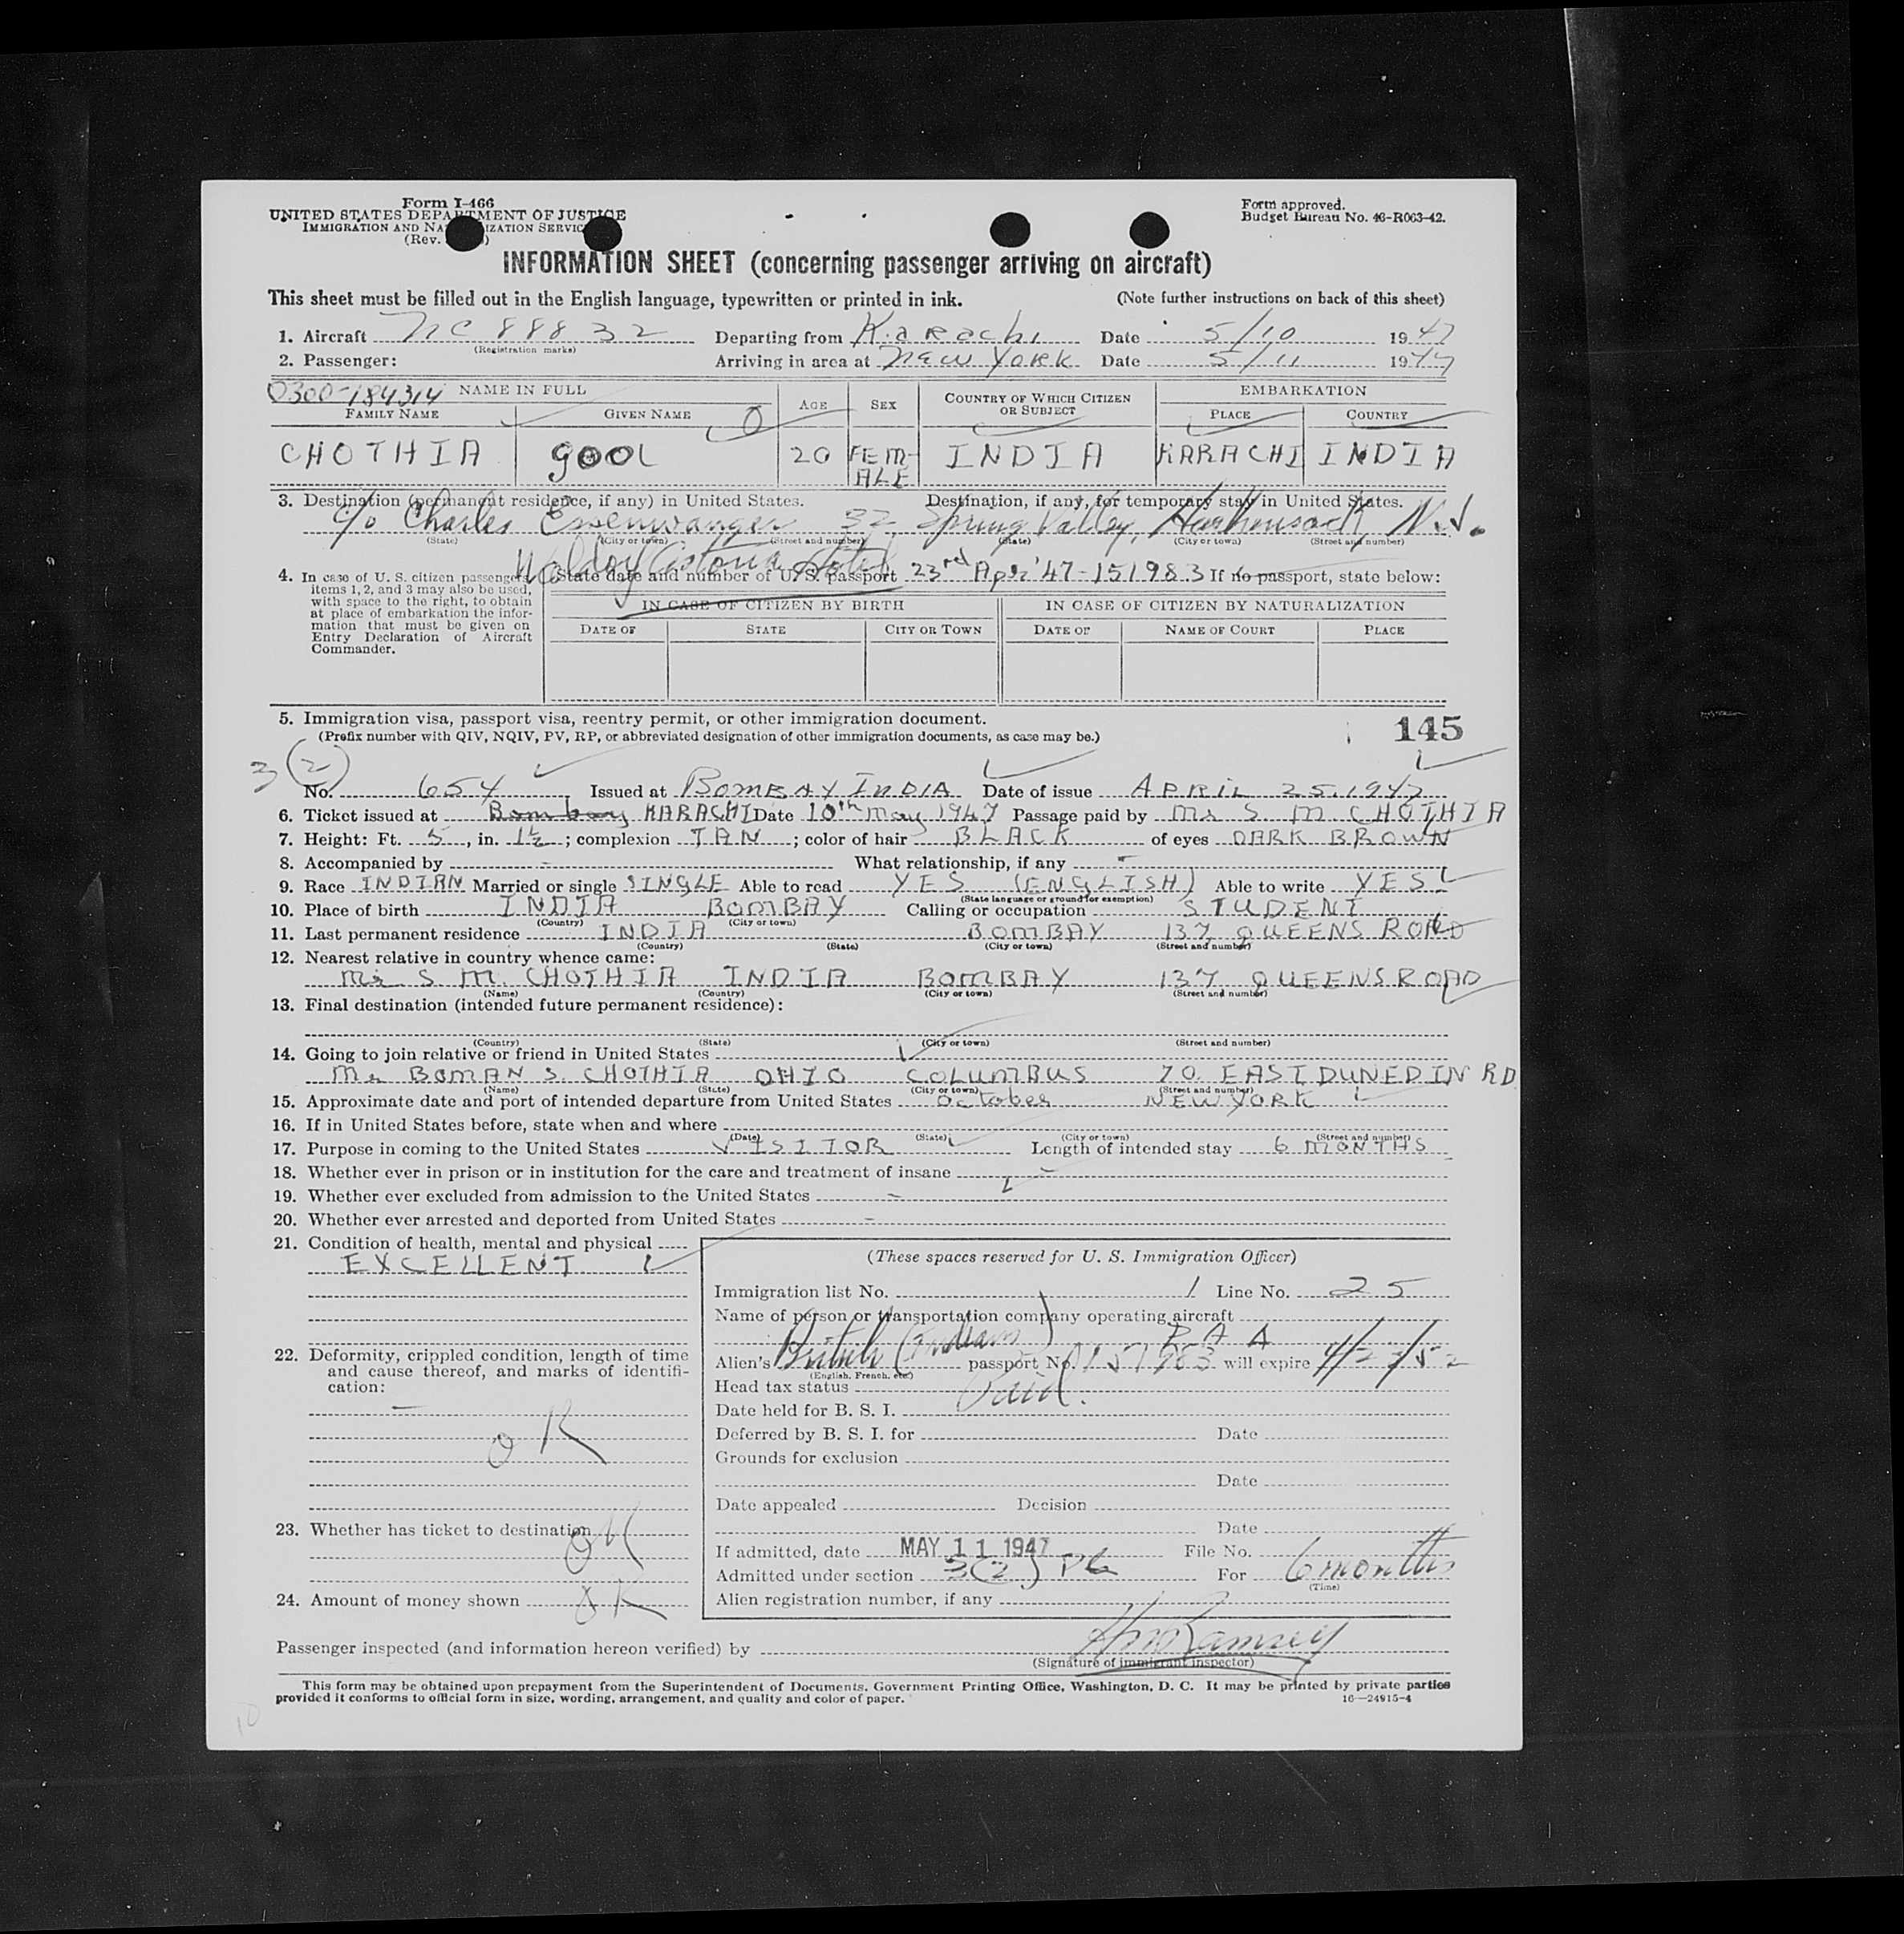 Form I-466
UNITED STATES DEPARTMENT OF JUSTICE
IMMIGRATION AND NATURALIZATION SERVICE
(Rev. )
Form approved.
Budget Bureau No. 46-R063-42.
INFORMATION SHEET (concerning passenger arriving on aircraft)
This sheet must be filled out in the English language, typewritten or printed in ink. (Note further instructions on back of this sheet)
1. Aircraft NC 88832 Departing from Karachi Date 5/10 1947
(Registration marks)
2. Passenger: Arriving in area at New York Date 5/11 1947
0300-184314 NAME IN FULL AGE SEX COUNTRY OF WHICH CITIZEN OR SUBJECT EMBARKATION
FAMILY NAME GIVEN NAME PLACE COUNTRY
CHOTHIA GOOL 20 FEMALE INDIA KARACHI INDIA
3. Destination (permanent residence, if any) in United States. Destination, if any, for temporary stay in United States.
c/o Charles Essenwanger 32 Spring Valley, Hackensack, N.J.
(State) (City or town) (Street and number) (State) (City or town) (Street and number)
Waldorf Astoria Hotel
4. In case of U. S. citizen passengers, items 1, 2, and 3 may also be used, with space to the right, to obtain at place of embarkation the information that must be given on Entry Declaration of Aircraft Commander.
State date and number of U. S. passport 23rd Apr '47-151983 If no passport, state below:
IN CASE OF CITIZEN BY BIRTH IN CASE OF CITIZEN BY NATURALIZATION
DATE OF STATE CITY OR TOWN DATE OF NAME OF COURT PLACE
5. Immigration visa, passport visa, reentry permit, or other immigration document.
(Prefix number with QIV, NQIV, PV, RP, or abbreviated designation of other immigration documents, as case may be.)
145
3 (2)
No. 654 Issued at BOMBAY INDIA Date of issue APRIL 25, 1947
6. Ticket issued at Bombay KARACHI Date 10th May 1947 Passage paid by Mr S. M. CHOTHIA
7. Height: Ft. 5, in. 1½; complexion TAN; color of hair BLACK of eyes DARK BROWN
8. Accompanied by - What relationship, if any -
9. Race INDIAN Married or single SINGLE Able to read YES (ENGLISH) Able to write YES
(State language or ground for exemption)
10. Place of birth INDIA BOMBAY Calling or occupation STUDENT
(Country) (City or town)
11. Last permanent residence INDIA BOMBAY 137 QUEENS ROAD
(Country) (State) (City or town) (Street and number)
12. Nearest relative in country whence came:
Mr S. M. CHOTHIA INDIA BOMBAY 137 QUEENS ROAD
(Name) (Country) (City or town) (Street and number)
13. Final destination (intended future permanent residence):
(Country) (State) (City or town) (Street and number)
14. Going to join relative or friend in United States
Mr BOMAN S. CHOTHIA OHIO COLUMBUS 70. EAST DUNEDIN RD
(Name) (State) (City or town) (Street and number)
15. Approximate date and port of intended departure from United States October NEW YORK
16. If in United States before, state when and where
(Date) (State) (City or town) (Street and number)
17. Purpose in coming to the United States VISITOR Length of intended stay 6 MONTHS
18. Whether ever in prison or in institution for the care and treatment of insane -
19. Whether ever excluded from admission to the United States -
20. Whether ever arrested and deported from United States -
21. Condition of health, mental and physical
EXCELLENT
22. Deformity, crippled condition, length of time and cause thereof, and marks of identification:
-
OK
23. Whether has ticket to destination OK
24. Amount of money shown OK
(These spaces reserved for U. S. Immigration Officer)
Immigration list No. 1 Line No. 25
Name of person or transportation company operating aircraft
P A A
Alien's British (Indian) passport No. 151983 will expire 4/22/52
(English, French, etc.)
Head tax status Paid.
Date held for B. S. I.
Deferred by B. S. I. for Date
Grounds for exclusion
Date
Date appealed Decision
Date
If admitted, date MAY 11 1947 File No.
Admitted under section 3(2) For 6 months
(Time)
Alien registration number, if any
Passenger inspected (and information hereon verified) by Ramsey
(Signature of immigrant inspector)
This form may be obtained upon prepayment from the Superintendent of Documents, Government Printing Office, Washington, D. C. It may be printed by private parties
provided it conforms to official form in size, wording, arrangement, and quality and color of paper. 16-24915-4
10